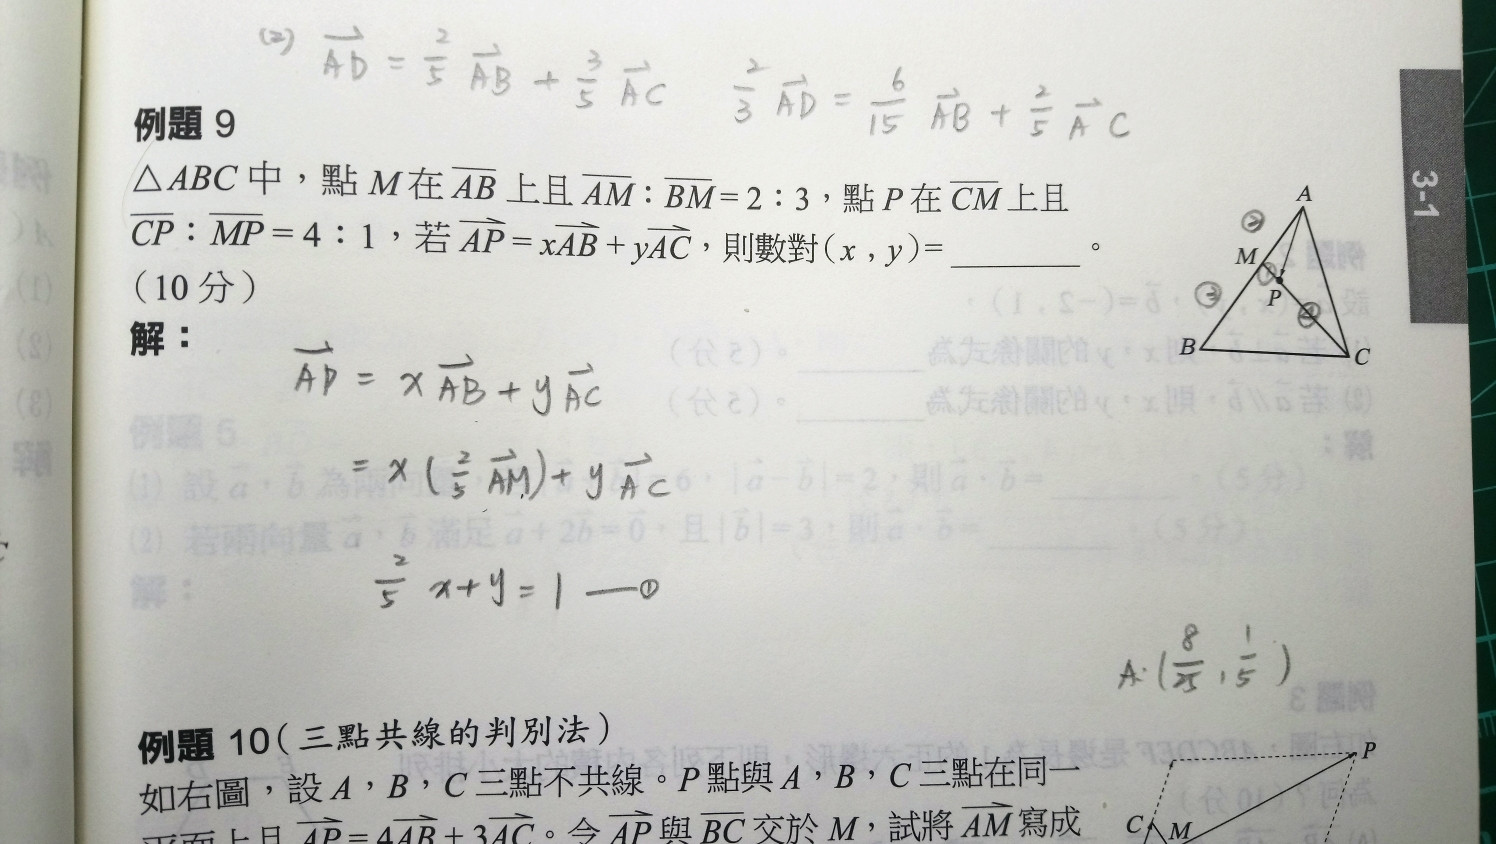 (2) AD = 2/5 AB + 3/5 AC  2/3 AD = 6/15 AB + 2/5 AC
例題 9
△ABC 中，點 M 在 AB 上且 AM：BM = 2：3，點 P 在 CM 上且
CP：MP = 4：1，若 AP = xAB + yAC，則數對(x , y)= ________。
（10 分）
解：
AP = xAB + yAC
= x(2/5 AM) + yAC
2/5 x + y = 1 —①
A:(8/25 , 1/5)
A
②
M
①
P
③
④
B
C
3-1
例題 10（三點共線的判別法）
如右圖，設 A，B，C 三點不共線。P 點與 A，B，C 三點在同一
平面上且 AP = 4AB + 3AC。令 AP 與 BC 交於 M，試將 AM 寫成
P
C
M